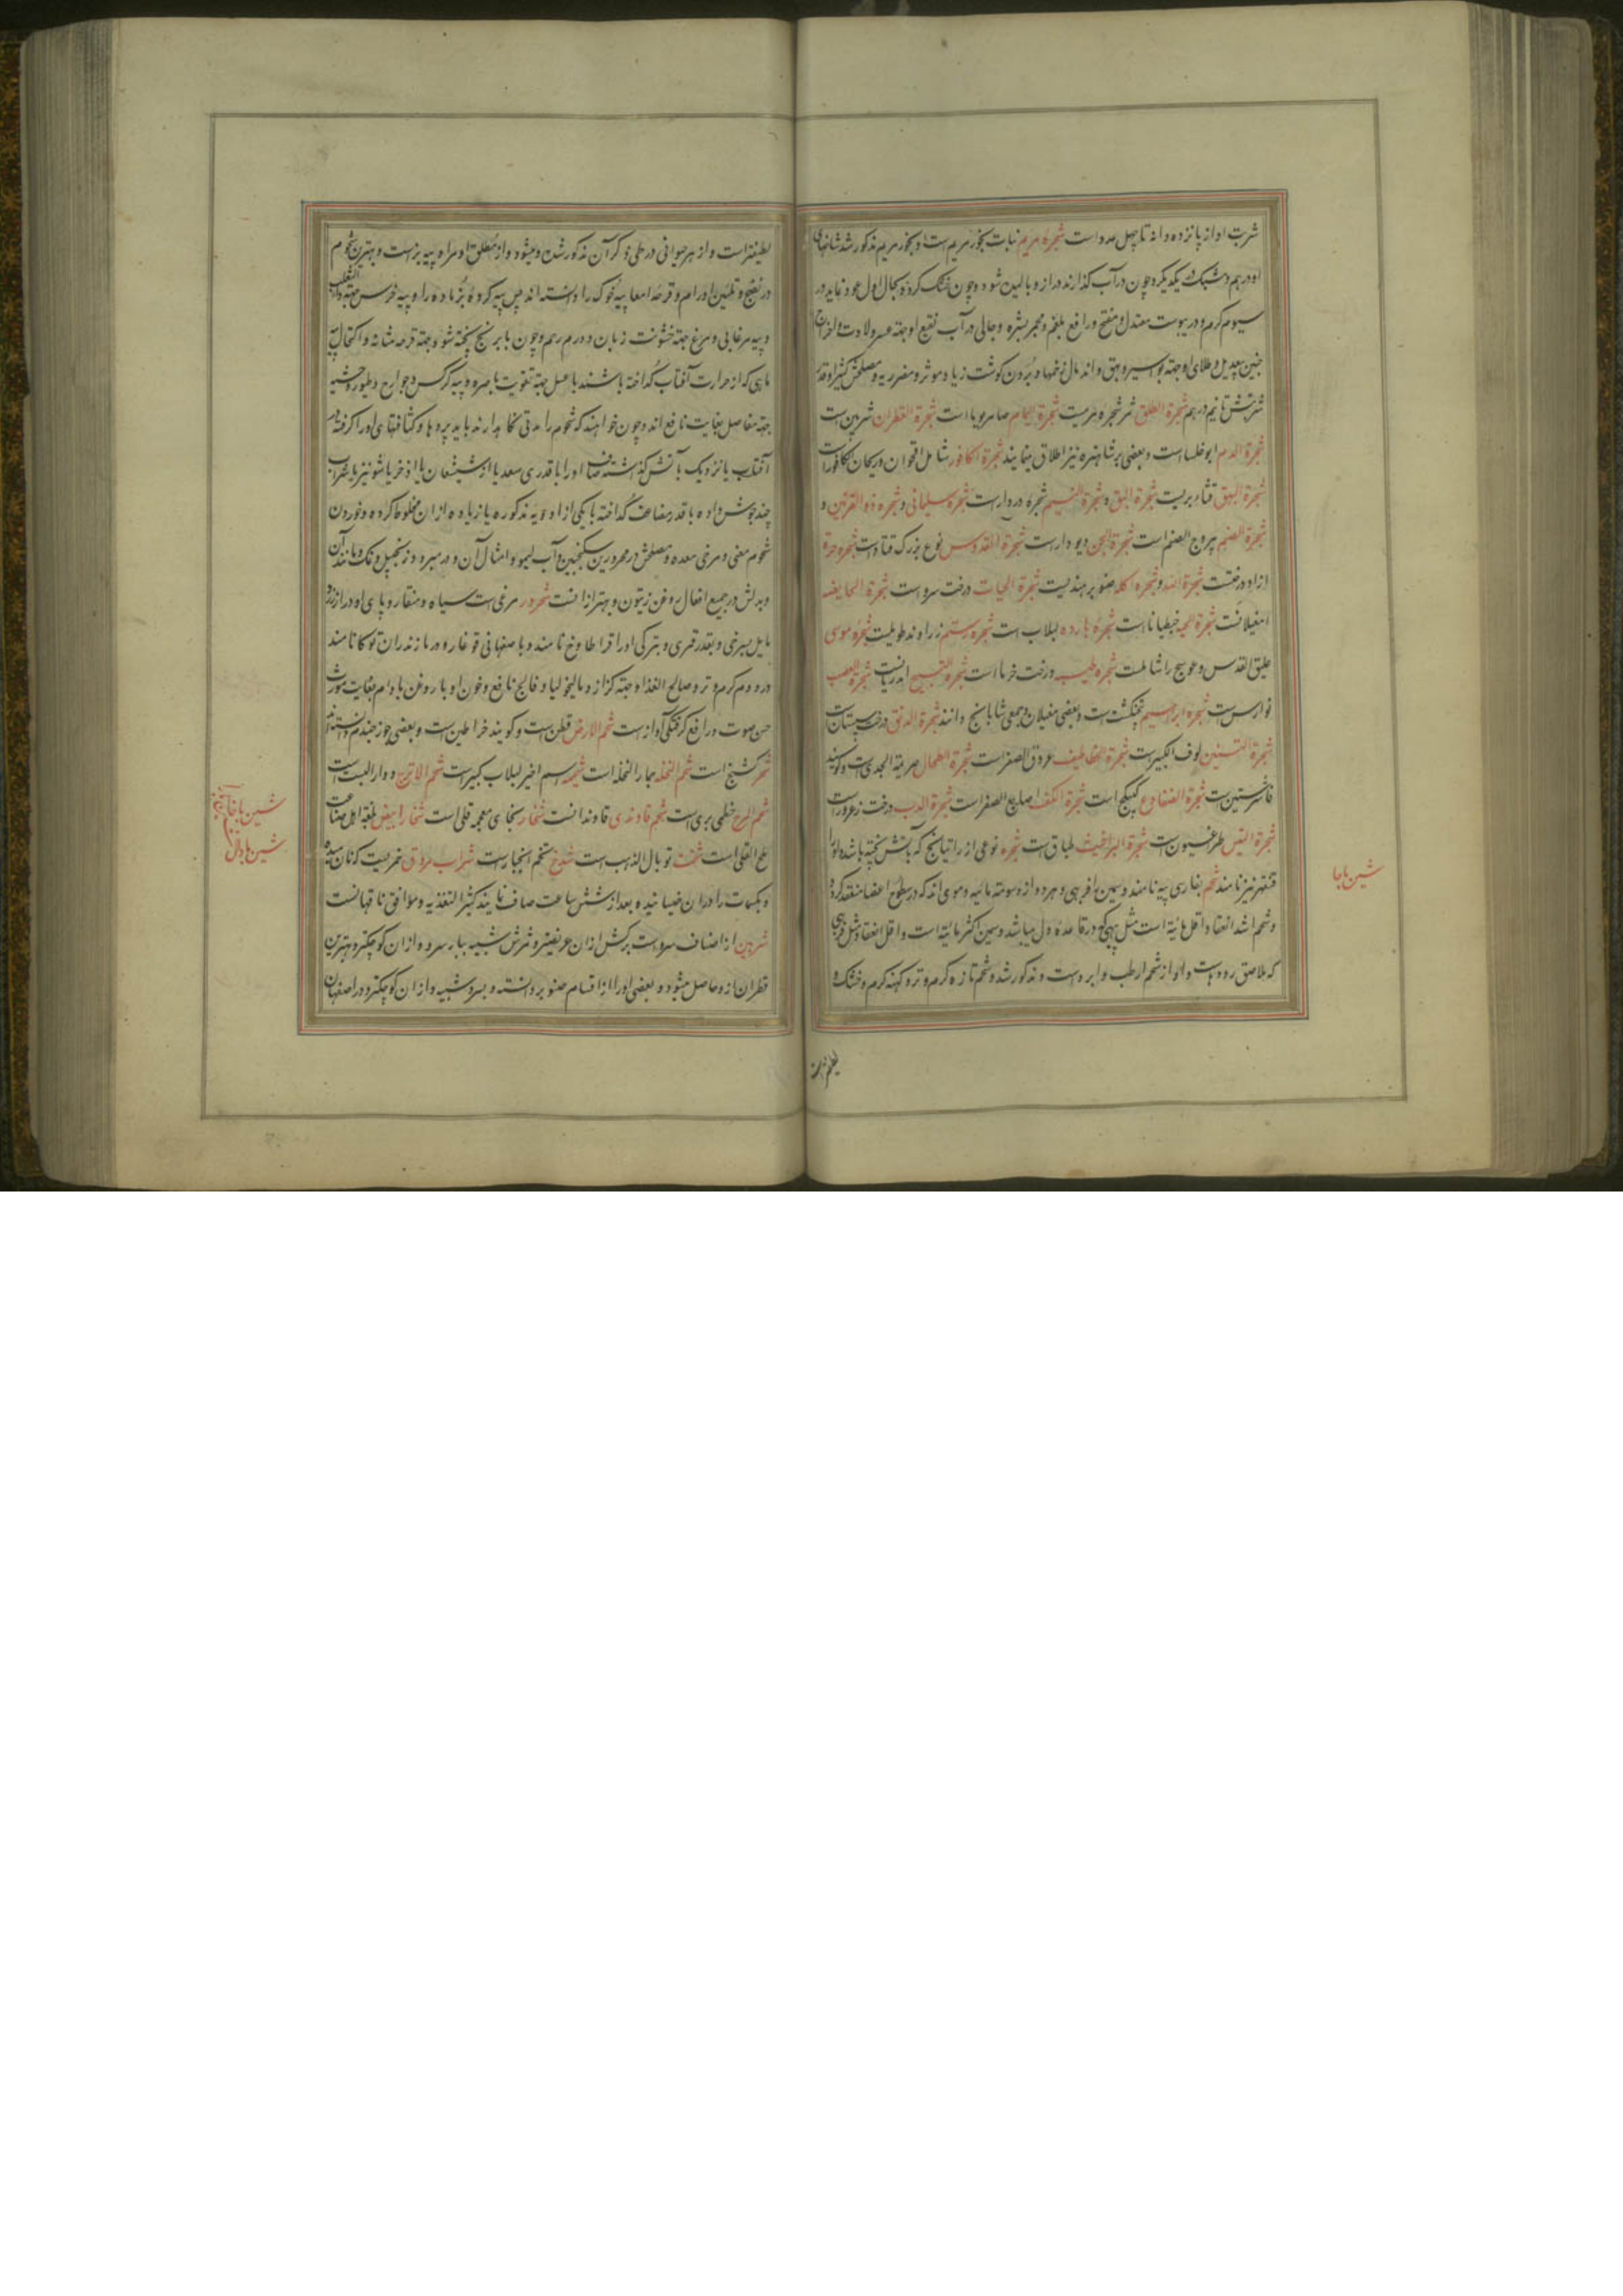 شربت او از پانزده دانه تا چهل عدد است شجرهٔ مریم نبات بخور مریم است و بخور مریم مذکور شد شاخهای
او در هم و مشبک بیکدیگر و چون در آب گذارند دراز و بالیده شود و چون خشک کرده بحال اول عود نماید در
سیوم گرم و در یبوست معتدل و مفتح و رافع بلغم و محمر بشره و جالی و در آب نقیع او جهته عسر ولادت و اخراج
جنین بیعدیل و طلای او جهته بواسیر و بهق و اندمال زخمها و بردن گوشت زیاد موثر و مضر ریه و مصلحش کثیرا و قدر
شربتش تا نیم درهم شجرة الطلق ثمر شجره مریمست شجرة الیمام صامریوما است شجرة القطران شربین است
شجرة الدم ابوخلسا است و بعضی بر شاهتره نیز اطلاق مینمایند شجرة الکافور شامل اقحوان و ریحان الکافور است
شجرة البهق قثاء بریست شجرة البق و شجرة النسیم شجره دردار است شجره سلیمانی و شجره ذو القرنین و
شجرة الصنم یبروح الصنم است شجرة الجن دیودار است شجرة القدوس نوع بزرک قتاد است شجره حرة
ازاد درختست شجرة الله و شجره اکله صنوبر هندیست شجرة الحیات درخت سرو است شجرة الحایضه
امغیلانست شجرة الحیه خبطیانا است شجرهٔ بارده لبلاب است شجره رستم زراوند طویلست شجرهٔ موسی
علیق القدس و عوسج را شاملست شجره طیبه درخت خرما است شجرة التسبیح
است شجرة ابراهیم پنجنکشت است و بعضی مغیلان و جمعی شابانج دانند شجرة الدبق درخت سبستان است
شجرة التنین لوف الکبیر است شجرة الخطاطیف عروق الصفر است شجرة الطحال صریمة الجدی است و گویند
فاشرستین است شجرة الضفادع کبیکج است شجرة الکف اصابع الصفر است شجرة الدب درخت زعرور است
شجرة التیس طرغسیون است شجرة البراغیث طباق است شجره نوعی از راتیانج که باتش پخته باشد و او را
قنقهر نیز نامند شحم بفارسی پیه نامند و سمین را فربهی و هر دو از دسومته مائیه دموی اند که در سطوح اعضا منعقد گردد
و شحم اشد انعقاد و اقل مائیة است مثل پیهی که در قاعدهٔ دل میباشد و سمین اکثر مائیة است و اقل انعقاد مثل فربهی
که ملاصق روده است و او از شحم ارطب و ابرد است و مذکور شد و شحم تازه گرم و تر و کهنه گرم و خشک و
شین با جا
لطیفتر است و از هر حیوانی در طی ذکر آن مذکور شده و میشود و از مطلق او مراد پیه بز است و بهترین شحوم
در نضج و تلیین اورام و قرحه امعا پیه خوک را دانسته اند پس پیه گردهٔ بز ماده را و پیه خرس جهته داء الثعلب
و پیه مرغابی و مرغ جهته خشونت زبان و ورم رحم و چون با برنج پخته شود جهته قرحه مثانه و اکتحال پیه
ماهی که از حرارت آفتاب گداخته باشند با عسل جهته تقویت باصره و پیه کرکس و جوارح و طیور وحشیه
جهته مفاصل بغایت نافع اند و چون خواهند که شحوم را مدتی نگاه دارند باید پردها و کثافتهای او را گرفته در
آفتاب یا نزدیک بآتش گذاشته صاف او را با قدری سعد یا دارشیشعان یا اذخر یا شونیز با شراب
چند جوش داده یا قدر مضاعف گداخته با یکی از ادویه مذکوره یا زیاده از آن مخلوط کرده و خوردن
شحوم مغثی و مرخی معده و مصلحش در محرورین سکنجبین و آب لیمو و امثال آن و در مبرود زنجبیل و نمک و مانند آن
و بدلش در جمیع افعال روغن زیتون و بهتر از انست شحرور مرغی است سیاه و منقار و پای او دراز زرد
مایل بسرخی و بقدر قمری و بترکی او را قراطاوخ نامند و باصفهانی قوغاره و در مازندران توکا نامند
در دوم گرم و تر و صالح الغذا و جهته کزاز و مالیخولیا و فالج نافع و خون او با روغن بادام بغایت مورث
حسن صوت و رافع گرفتگی آواز است شحم الارض قطن است و گویند خراطین است و بعضی جوز جندم دانسته اند
شحم النخله جمار النخله است اسم اخیر لبلاب کبیر است شحم الاترج
شحم المرج خطمی بری است شحم قاوندی قاوندانست شخار بخای معجمه قلی است شخار ابیض بلغة اهل صناعت
ملح القلی است توبال الذهب است تخم انجبار است شراب مروق خمریست که نان میده
و بکسمات را در ان خیسانیده بعد از شش ساعت صاف نمایند کثیر التغذیه و موافق ناقهانست
شربین از اصناف سرو است برکش از ان عریضتر و ثمرش شبیه ببار سرو و از ان کوچکتر و بهترین
قطران ازو حاصل میشود و بعضی او را از اقسام صنوبر دانسته و بسرو شبیه و از ان کوچکتر و در اصفهان
شین با خا
شین با دال